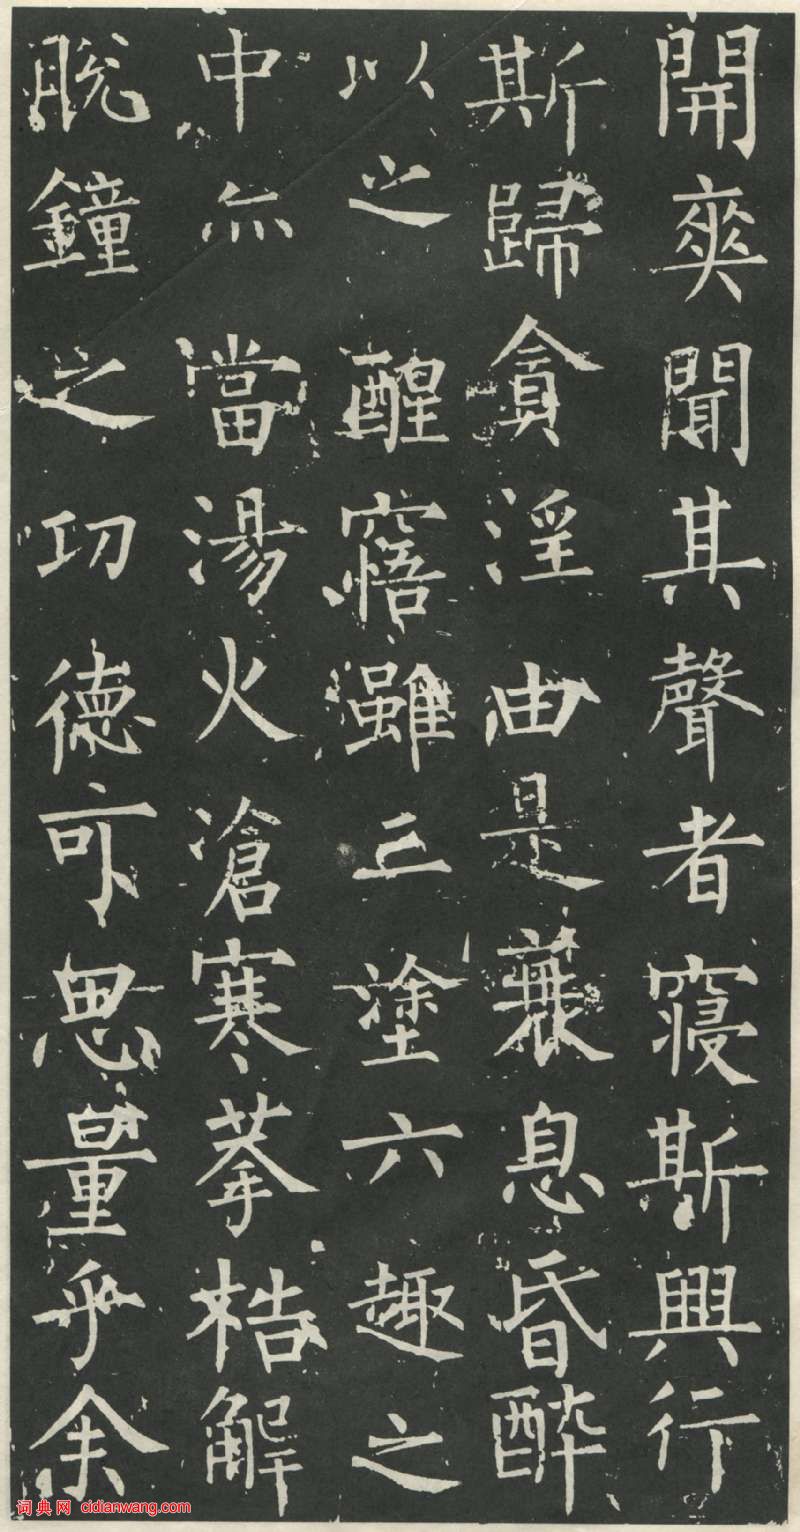 開爽聞其聲者寢斯興行
斯歸貪淫由是衰息昏醉
以之醒寤雖三塗六趣之
中亦當湯火滄寒拲梏解
脫鐘之功德可思量乎余
词典网 cidianwang.com